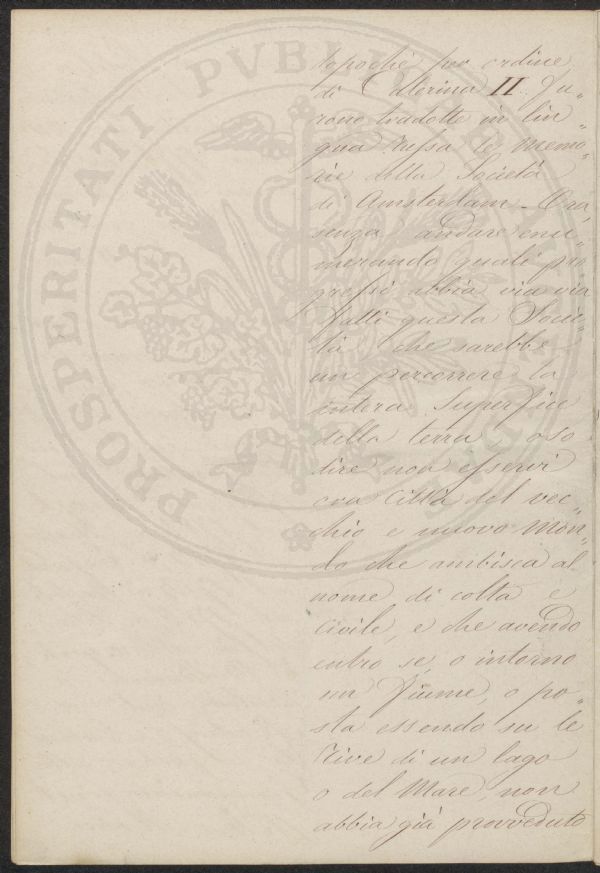 PROSPERITATI PVBLICAE
topochè per ordine
di Catterina II. fu„
rono tradotte in lin„
gua Russa le memo„
rie della Società
di Amsterdam. Ora,
senza andare enu„
merando quali pro
gressi abbia via via
fatti questa Socie„
tà che sarebbe
un percorrere la
intera Superficie
della terra oso
dire non esservi
ora Città del vec„
chio e nuovo Mon„
do che ambisca al
nome di colta e
civile, e che avendo
entro se, o intorno
un Fiume, o po„
sta essendo su le
Rive di un lago
o del Mare, non
abbia già provveduto